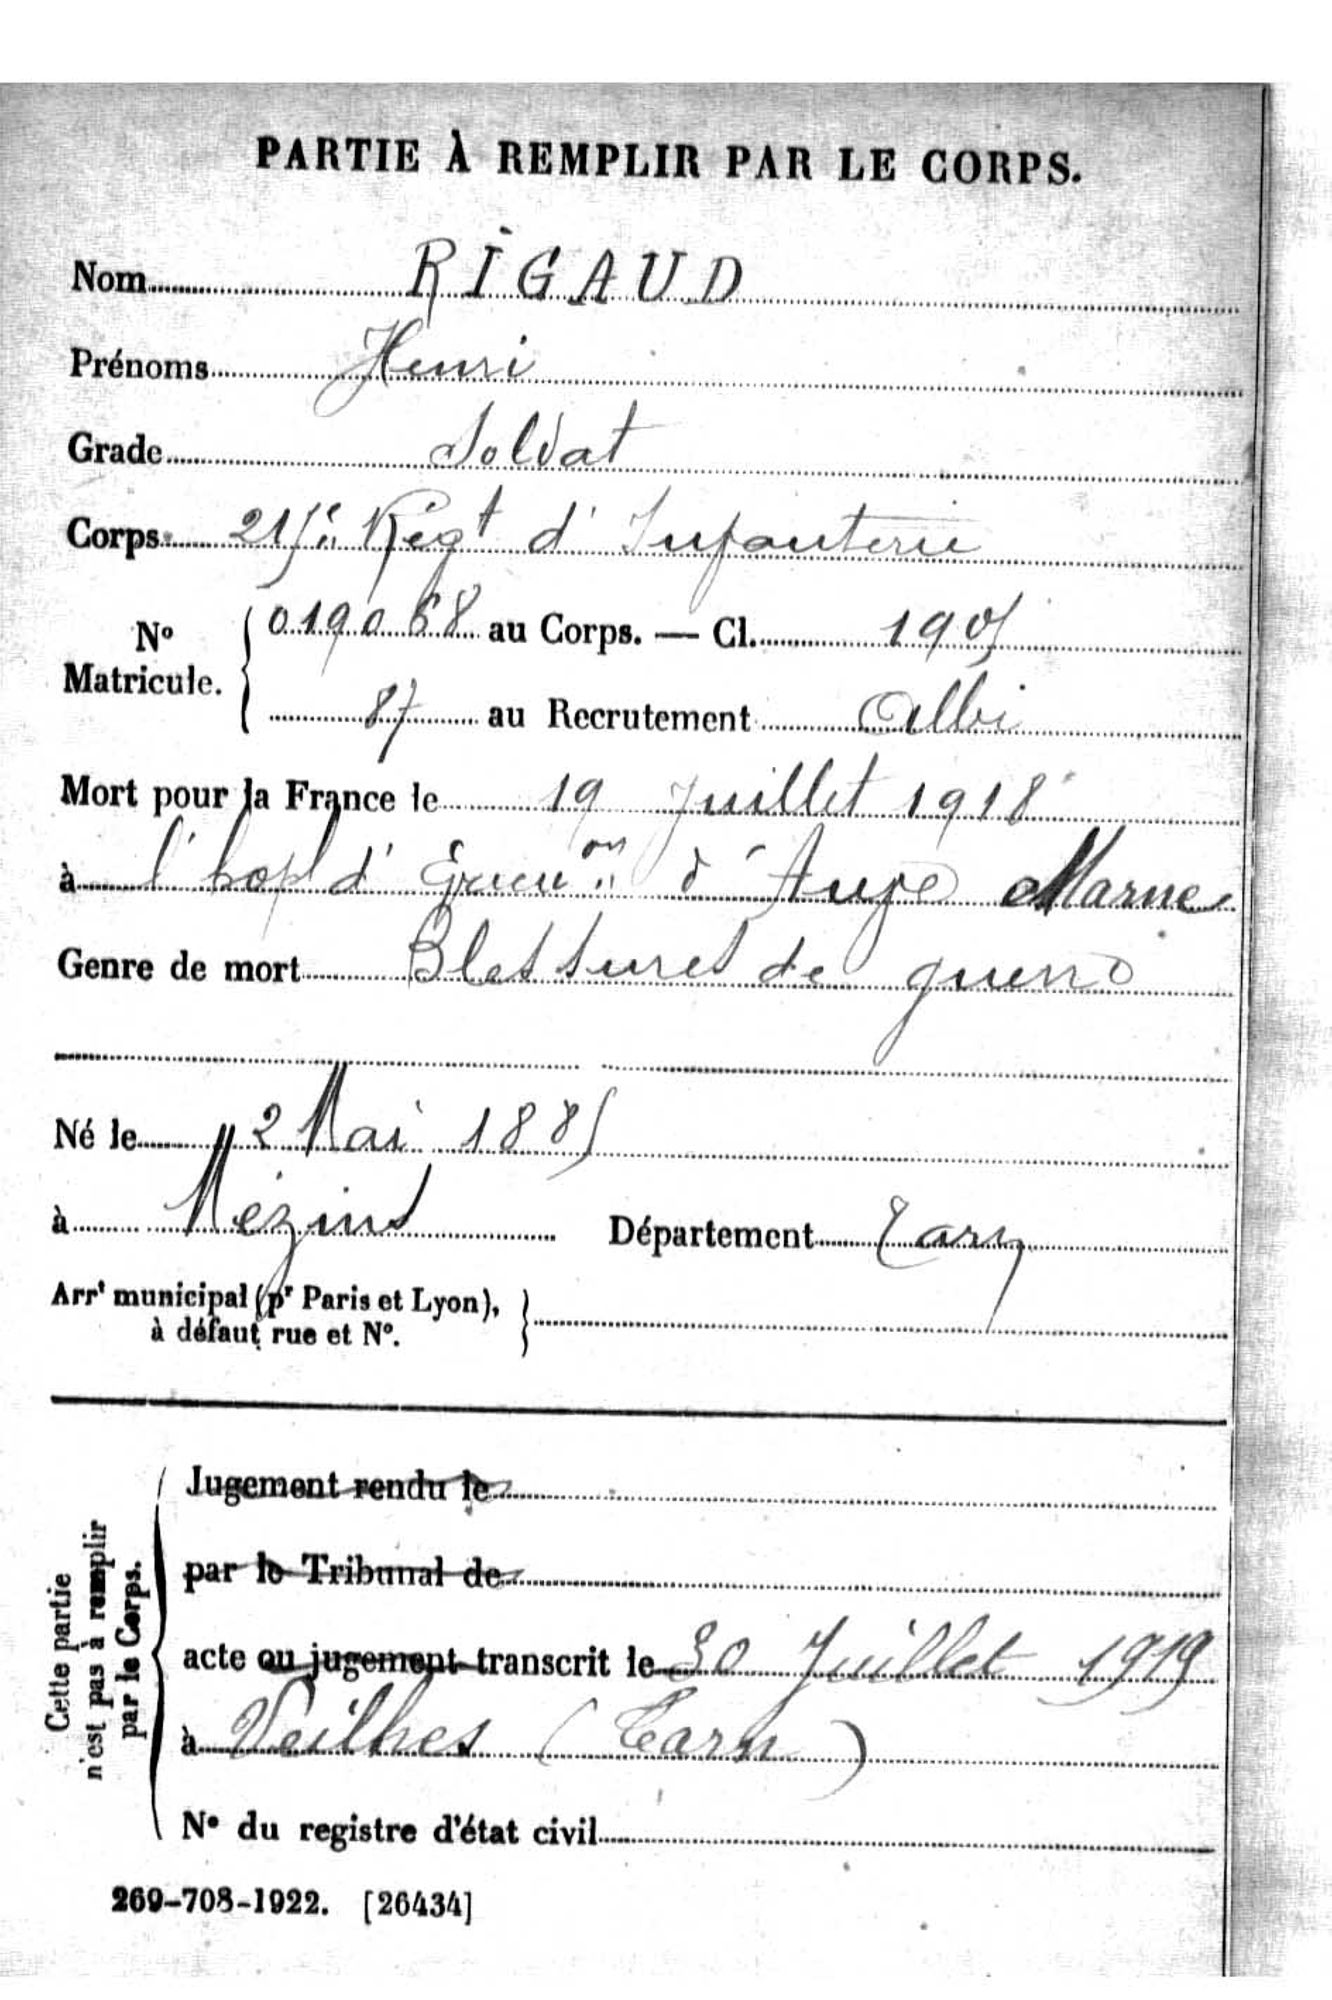 PARTIE À REMPLIR PAR LE CORPS.
Nom RIGAUD
Prénoms Henri
Grade Soldat
Corps 215e Régt d'Infanterie
No Matricule. 019068 au Corps. — Cl. 1905
87 au Recrutement Albi
Mort pour la France le 19 Juillet 1918
à l'hopl d' on d' Marne
Genre de mort Blessures de guerre
Né le 2 Mai 1885
à Mézins Département Tarn
Arrt municipal (pr Paris et Lyon),
à défaut rue et No.
Cette partie
n'est pas à remplir
par le Corps.
Jugement rendu le
par le Tribunal de
acte ou jugement transcrit le 30 Juillet 1919
à Veilhes (Tarn)
No du registre d'état civil
269-708-1922. [26434]